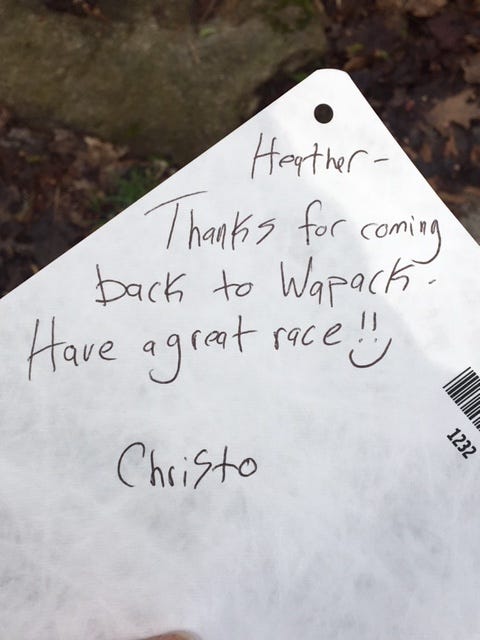 Heather-
Thanks for coming
back to Wapack.
Have a great race!!
Christo
1232